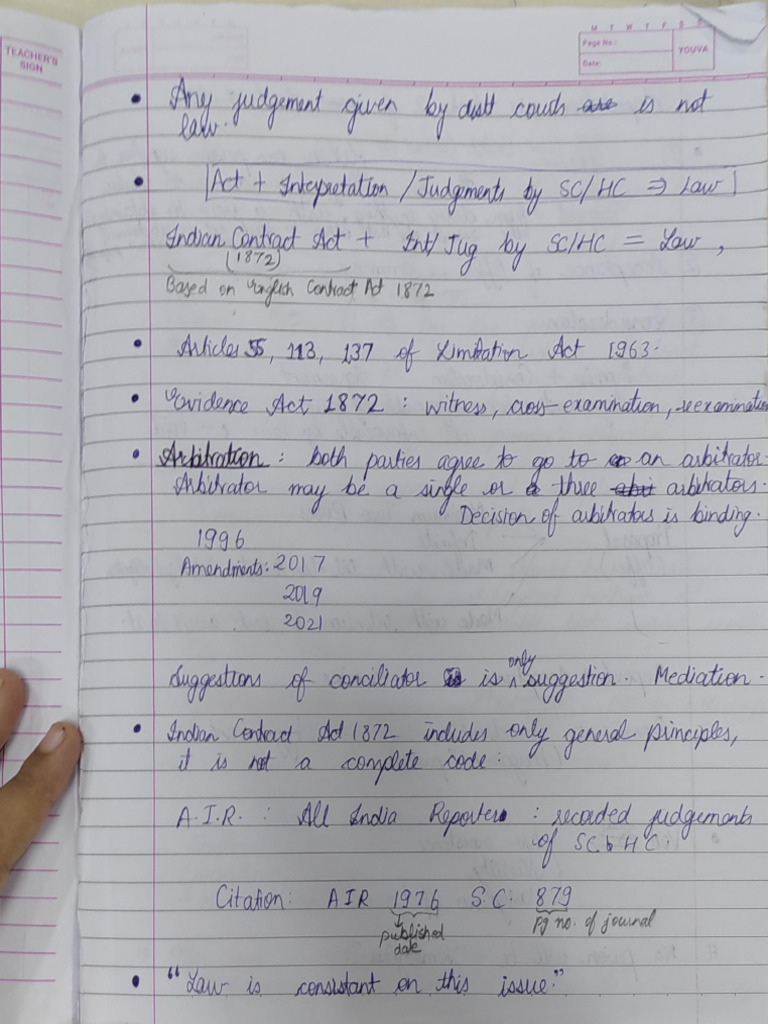 TEACHER'S
SIGN
M T W T F S S
Page No.:
YOUVA
Date:
• Any judgement given by distt courts is not
law.
• Act + Interpretation / Judgments by SC/HC ⇒ Law
Indian Contract Act + Int/Jug by SC/HC = Law,
(1872)
Based on English Contract Act 1872
• Articles 55, 113, 137 of Limitation Act 1963.
• Evidence Act 1872 : witness, cross-examination, reexamination
• Arbitration : both parties agree to go to an arbitrator.
Arbitrator may be a single or three arbitrators.
Decision of arbitrators is binding.
1996
Amendments: 2017
2019
2021
Suggestions of conciliator is only suggestion. Mediation.
• Indian Contract Act 1872 includes only general principles,
it is not a complete code.
A.I.R. : All India Reporter : recorded judgements
of SC & HC.
Citation: AIR 1976 S.C. 879
published
date
pg no. of journal
• "Law is consistant on this issue."